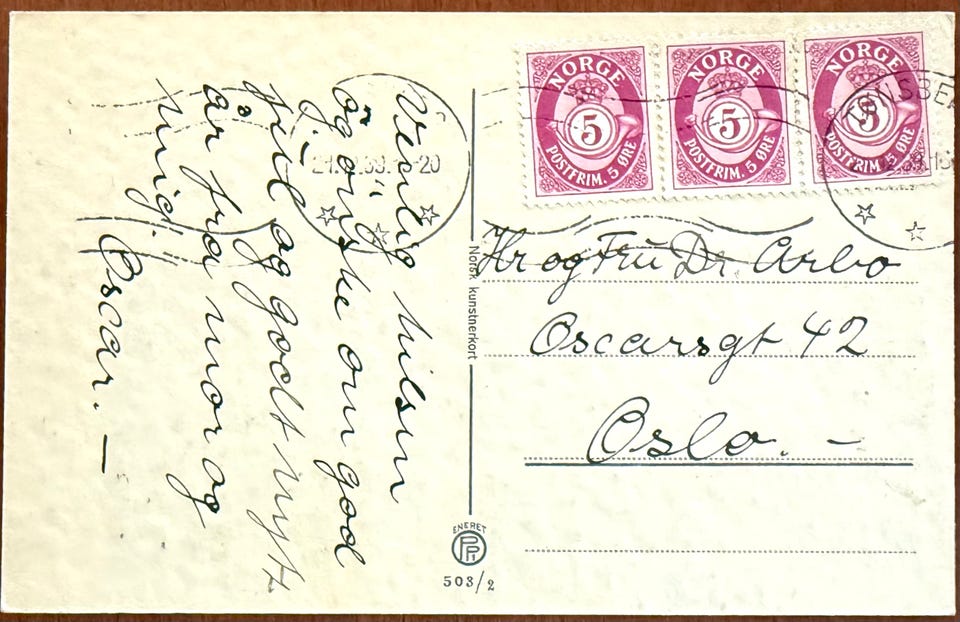 Venlig hilsen
og ønske om god
jul og godt nytt
år fra mor og
mig.
Oscar. —
21.12.39. -20
NORGE
5
POSTFRIM. 5 ØRE
NORGE
5
POSTFRIM. 5 ØRE
NORGE
5
POSTFRIM. 5 ØRE
Hr og Fru Dr Arbo
Oscarsgt 42
Oslo. —
Norsk kunstnerkort
ENERET
503/2